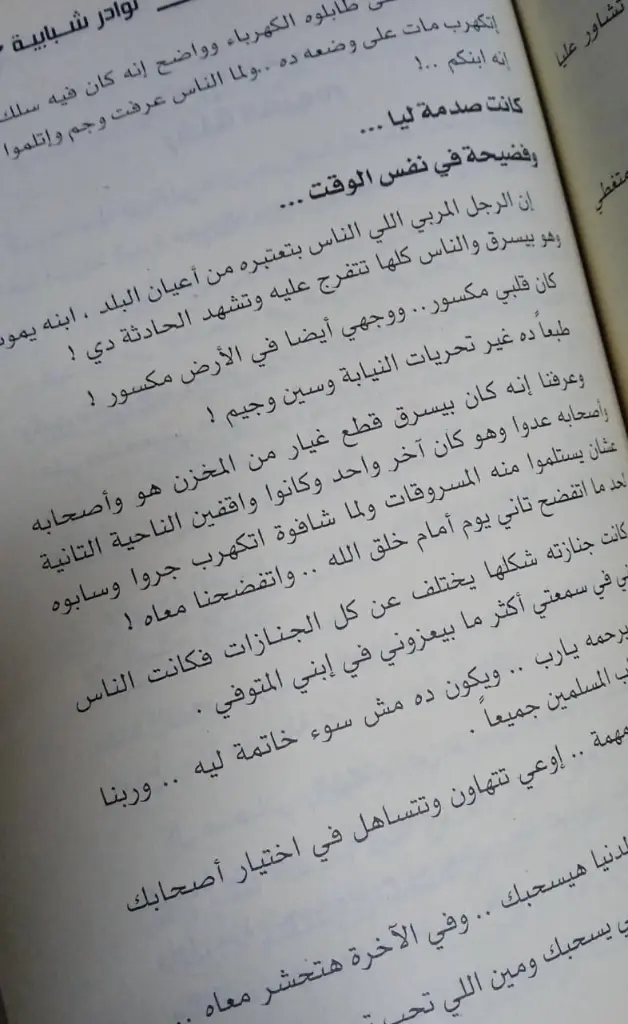 نوادر شبابية
طابلوه الكهرباء وواضح إنه كان فيه سلك
إتكهرب مات على وضعه ده ..ولما الناس عرفت وجم وإتلموا
إنه ابنكم ..!
كانت صدمة ليا ...
وفضيحة في نفس الوقت ...
إن الرجل المربي اللي الناس بتعتبره من أعيان البلد ، ابنه يموت
وهو بيسرق والناس كلها تتفرج عليه وتشهد الحادثة دي !
كان قلبي مكسور .. ووجهي أيضا في الأرض مكسور !
طبعاً ده غير تحريات النيابة وسين وجيم !
وعرفنا إنه كان بيسرق قطع غيار من المخزن هو وأصحابه
وأصحابه عدوا وهو كان آخر واحد وكانوا واقفين الناحية التانية
عشان يستلموا منه المسروقات ولما شافوة اتكهرب جروا وسابوه
لحد ما اتفضح تاني يوم أمام خلق الله .. واتفضحنا معاه !
كانت جنازته شكلها يختلف عن كل الجنازات فكانت الناس
في سمعتي أكثر ما بيعزوني في إبني المتوفي .
يرحمه يارب .. ويكون ده مش سوء خاتمة ليه .. وربنا
المسلمين جميعاً .
مهمة .. إوعي تتهاون وتتساهل في اختيار أصحابك
هيسحبك .. وفي الآخرة هتحشر معاه ..
يسحبك ومين اللي
تشاور عليا
متغطي